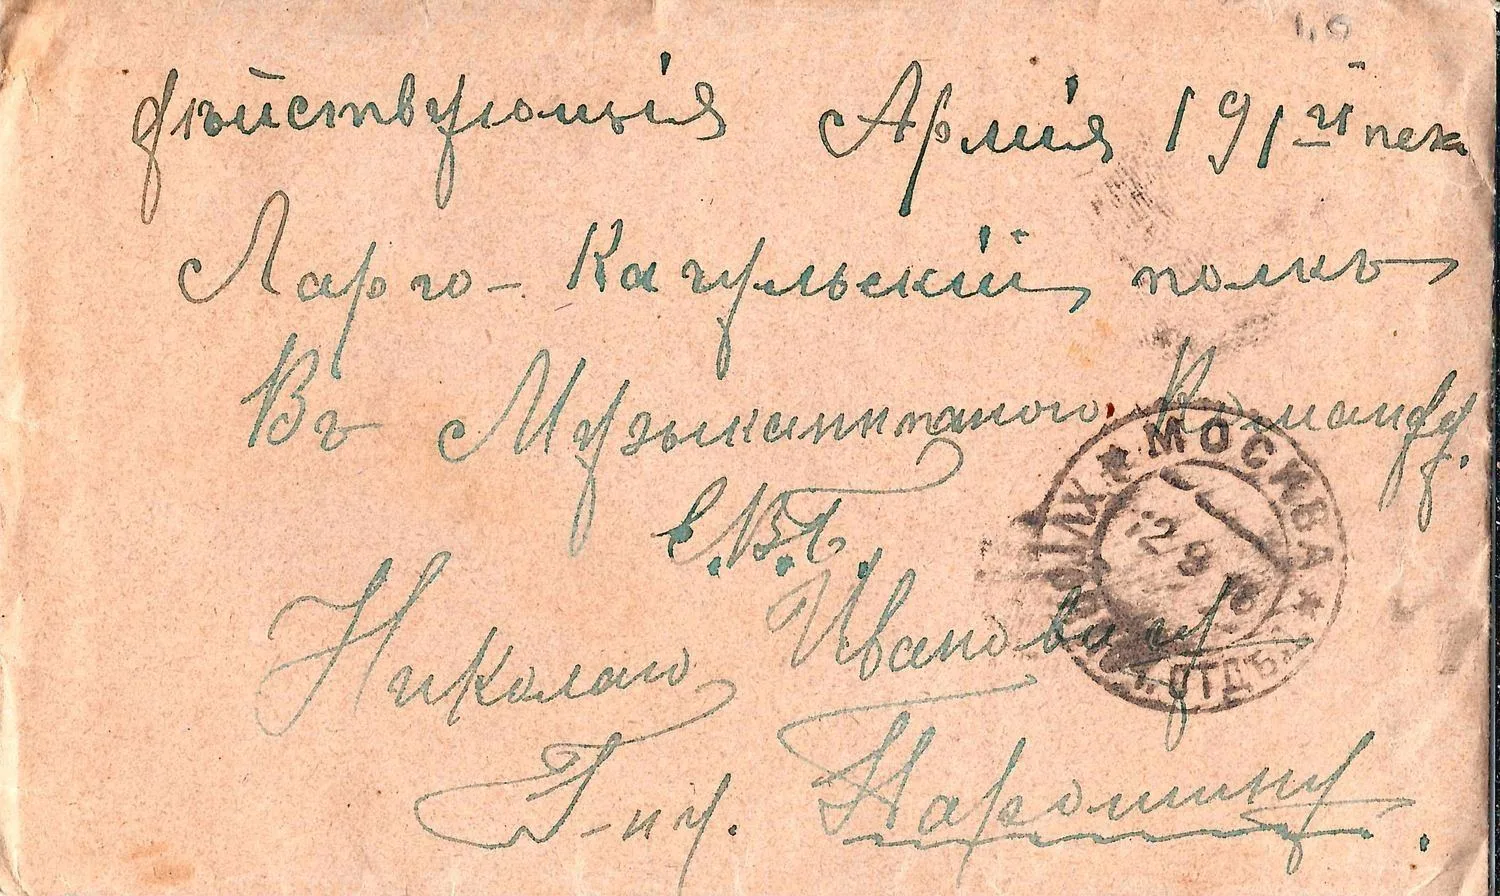 дѣйствующія Армія 191й пех
Ларго-Кагульскій полкъ
Въ Музыкантскаго Командy.
Е.В.Б.
Николаю Ивановичу
Г-ну. Наромину.
МОСКВА
12 9 16
ОТД.